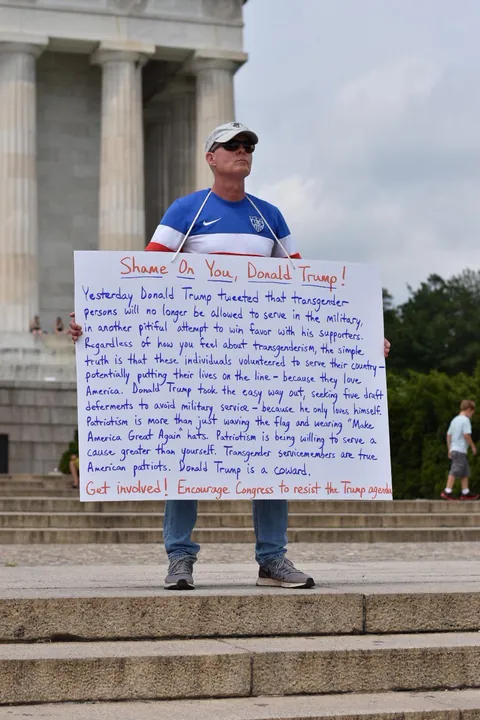 Shame On You, Donald Trump!
Yesterday Donald Trump tweeted that transgender
persons will no longer be allowed to serve in the military,
in another pitiful attempt to win favor with his supporters.
Regardless of how you feel about transgenderism, the simple
truth is that these individuals volunteered to serve their country -
potentially putting their lives on the line - because they love
America. Donald Trump took the easy way out, seeking five draft
determents to avoid military service - because he only loves himself.
Patriotism is more than just waving the flag and wearing "Make
America Great Again" hats. Patriotism is being willing to serve a
cause greater than yourself. Transgender servicemembers are true
American patriots. Donald Trump is a coward.
Get involved! Encourage Congress to resist the Trump agenda